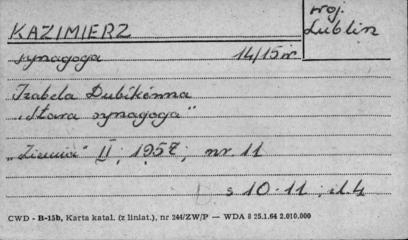 KAZIMIERZ
woj.
Lublin
synagoga 14/15 w.
Izabela Dubikówna
„Stara synagoga"
„Ziemia" II, 1957, nr. 11
s 10-11; il. 4
CWD - B-15b, Karta katal. (z liniat.), nr 244/ZW/P — WDA 8 25.1.64 2.010.000